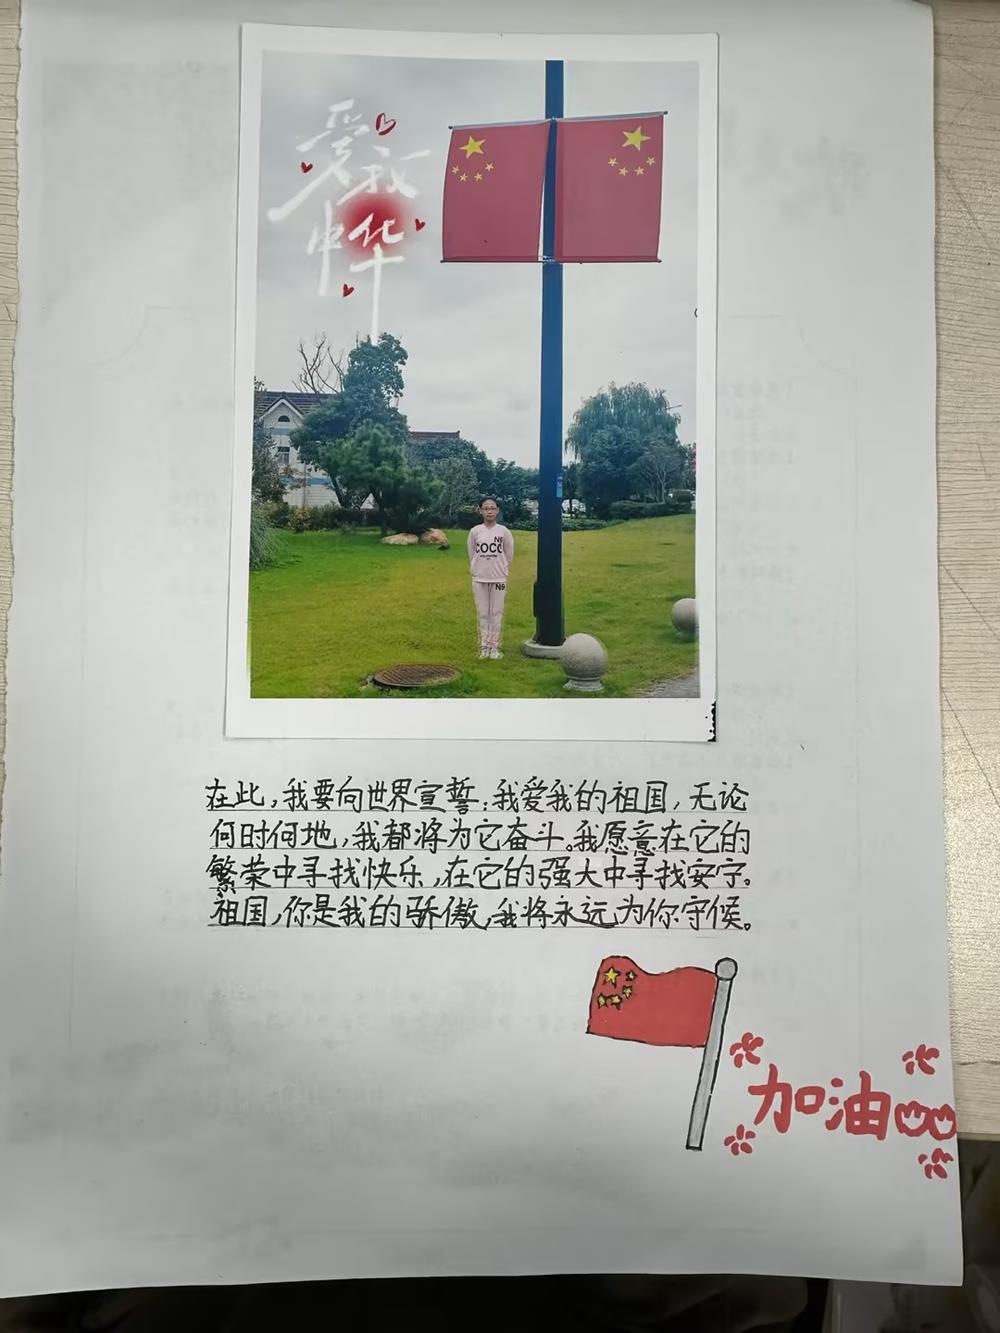 爱我
中华
N9
COCO
N9
在此,我要向世界宣誓:我爱我的祖国,无论
何时何地,我都将为它奋斗。我愿意在它的
繁荣中寻找快乐,在它的强大中寻找安宁。
祖国,你是我的骄傲,我将永远为你守候。
加油